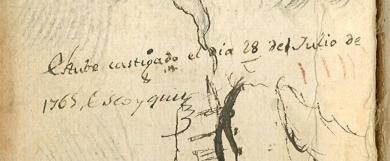 castigado el dia 28 del Julio de
1765, Escoyquiz